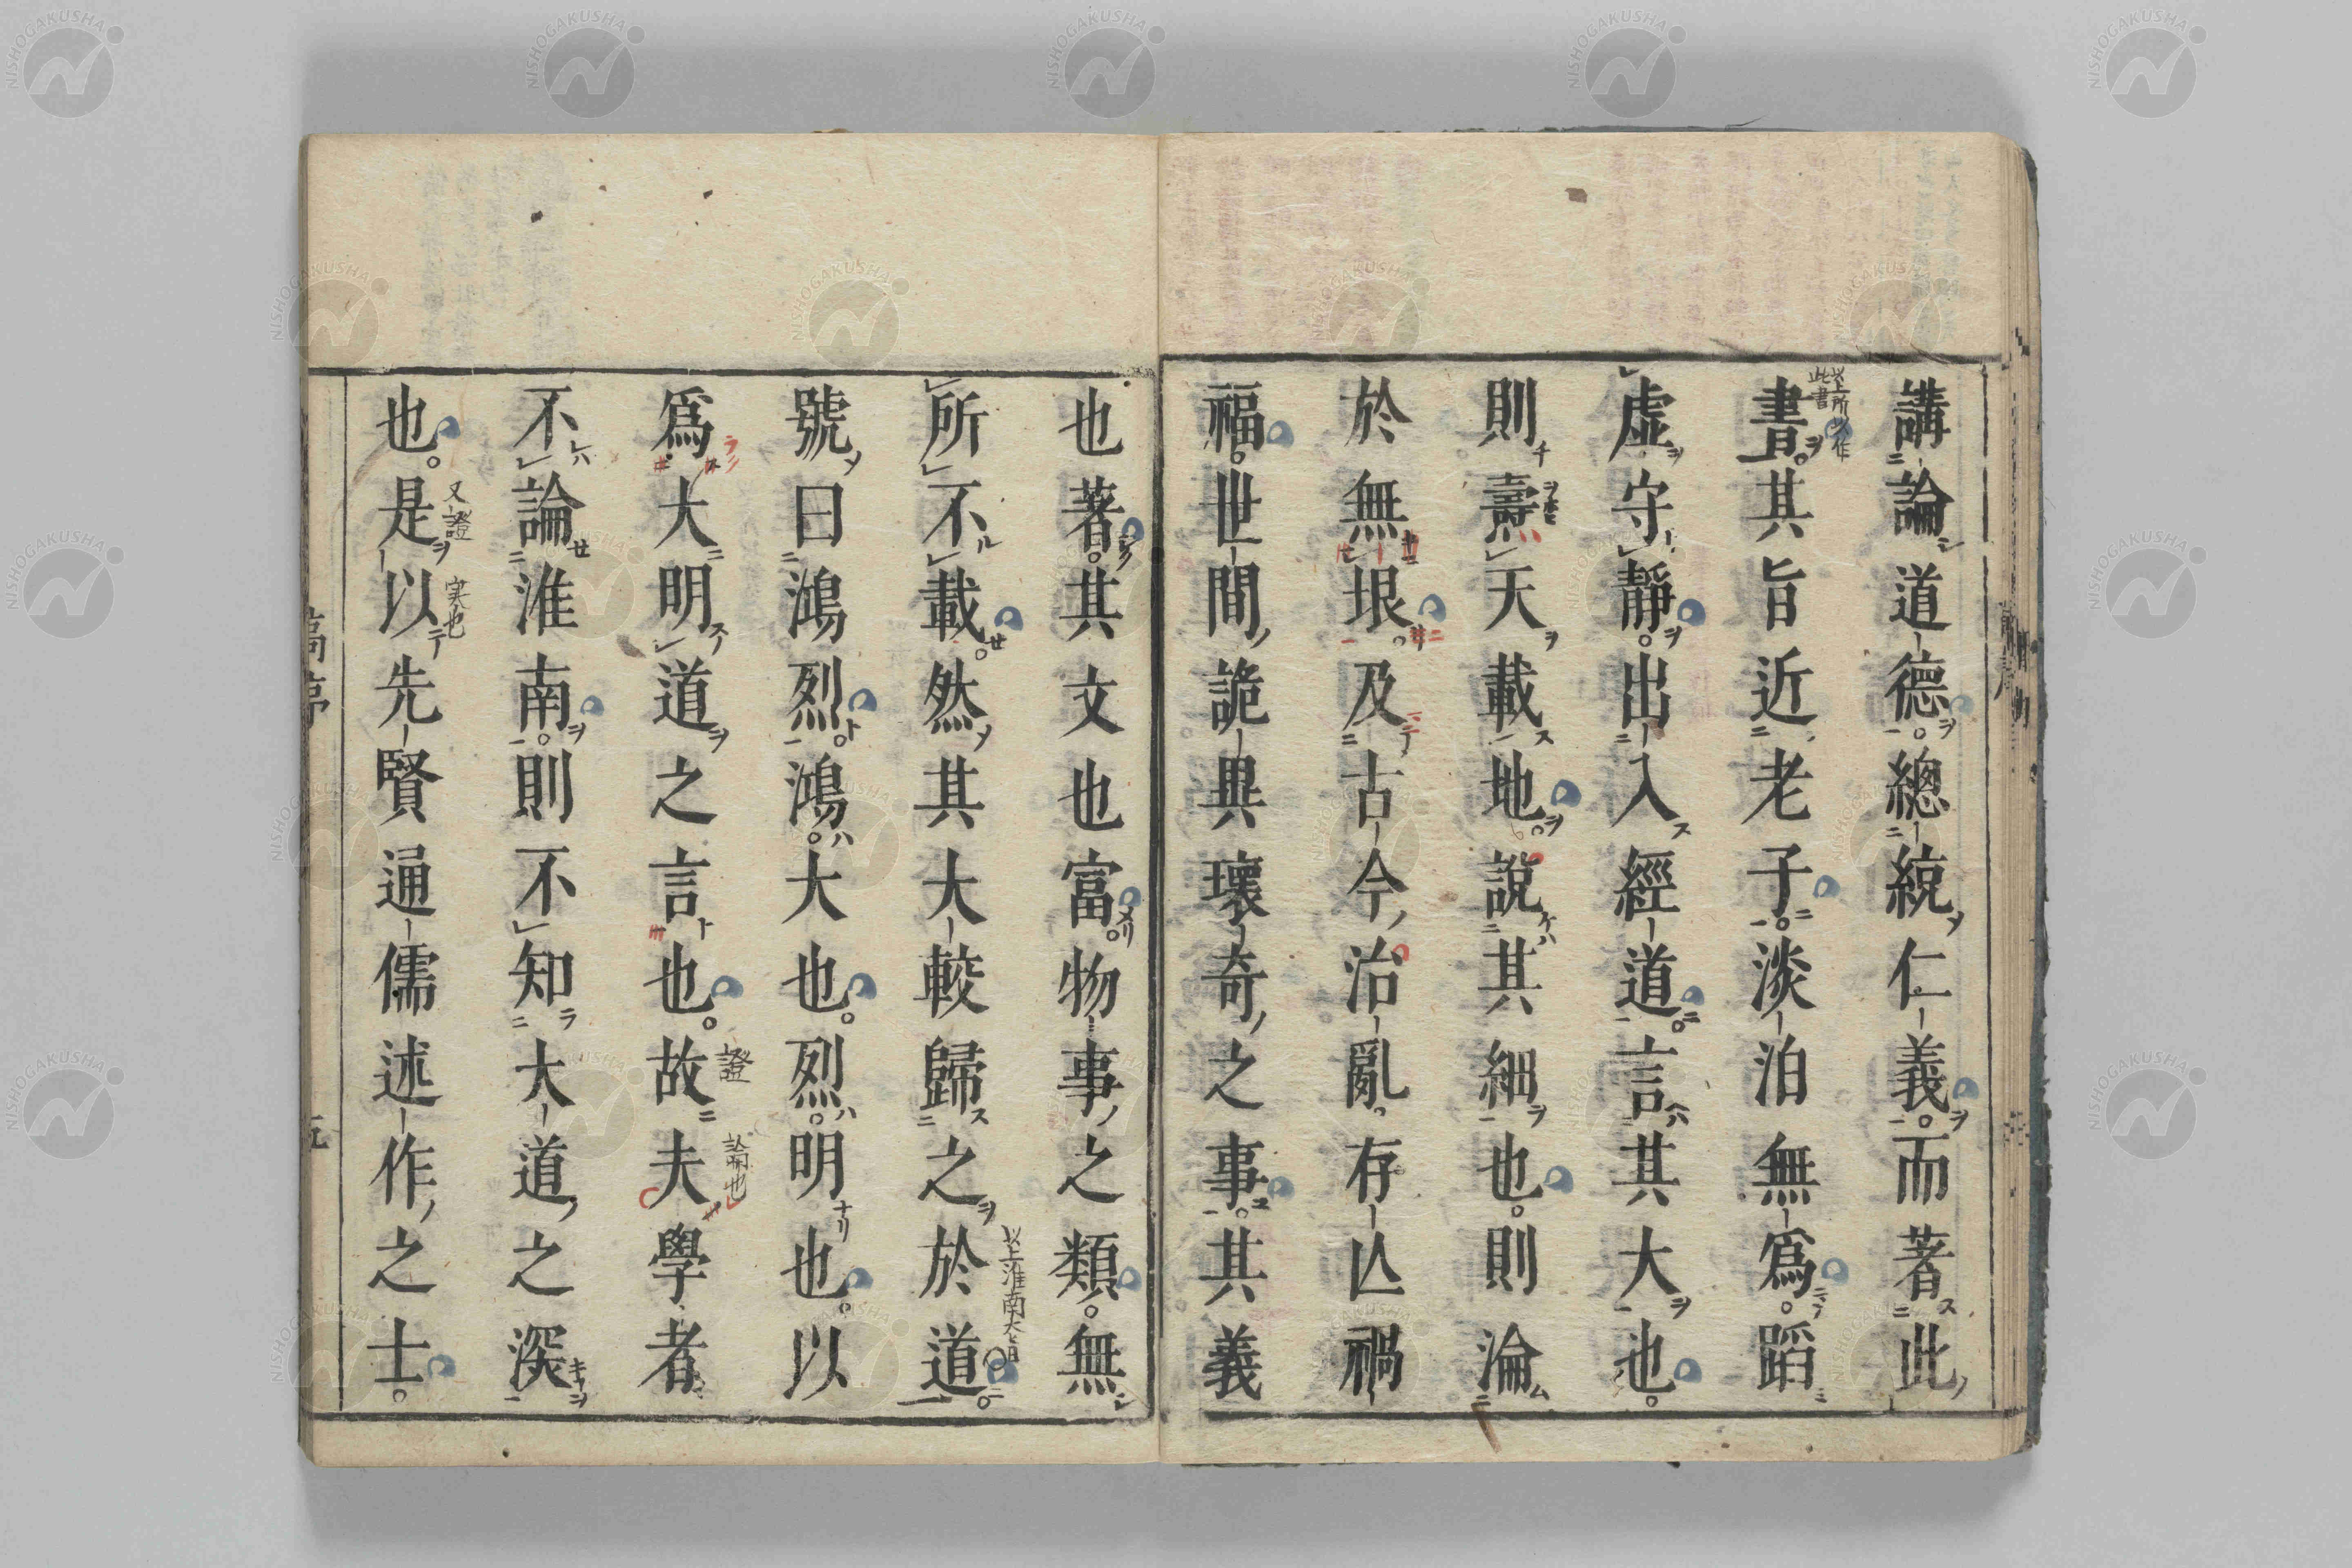 講論道德總統仁義而著此
書其旨近老子淡泊無爲蹈
虛守靜出入經道言其大也
則燾天載地說其細也則淪
於無垠及古今治亂存亾禍
福世間詭異瓌奇之事其義
也著其文也富物事之類無
所不載然其大較歸之於道
號曰鴻烈鴻大也烈明也以
爲大明道之言也故夫學者
不論淮南則不知大道之深
也是以先賢通儒述作之士
以上所以作
此書
以上淮南大旨
證
論也
又證
実也
NISHOGAKUSHA